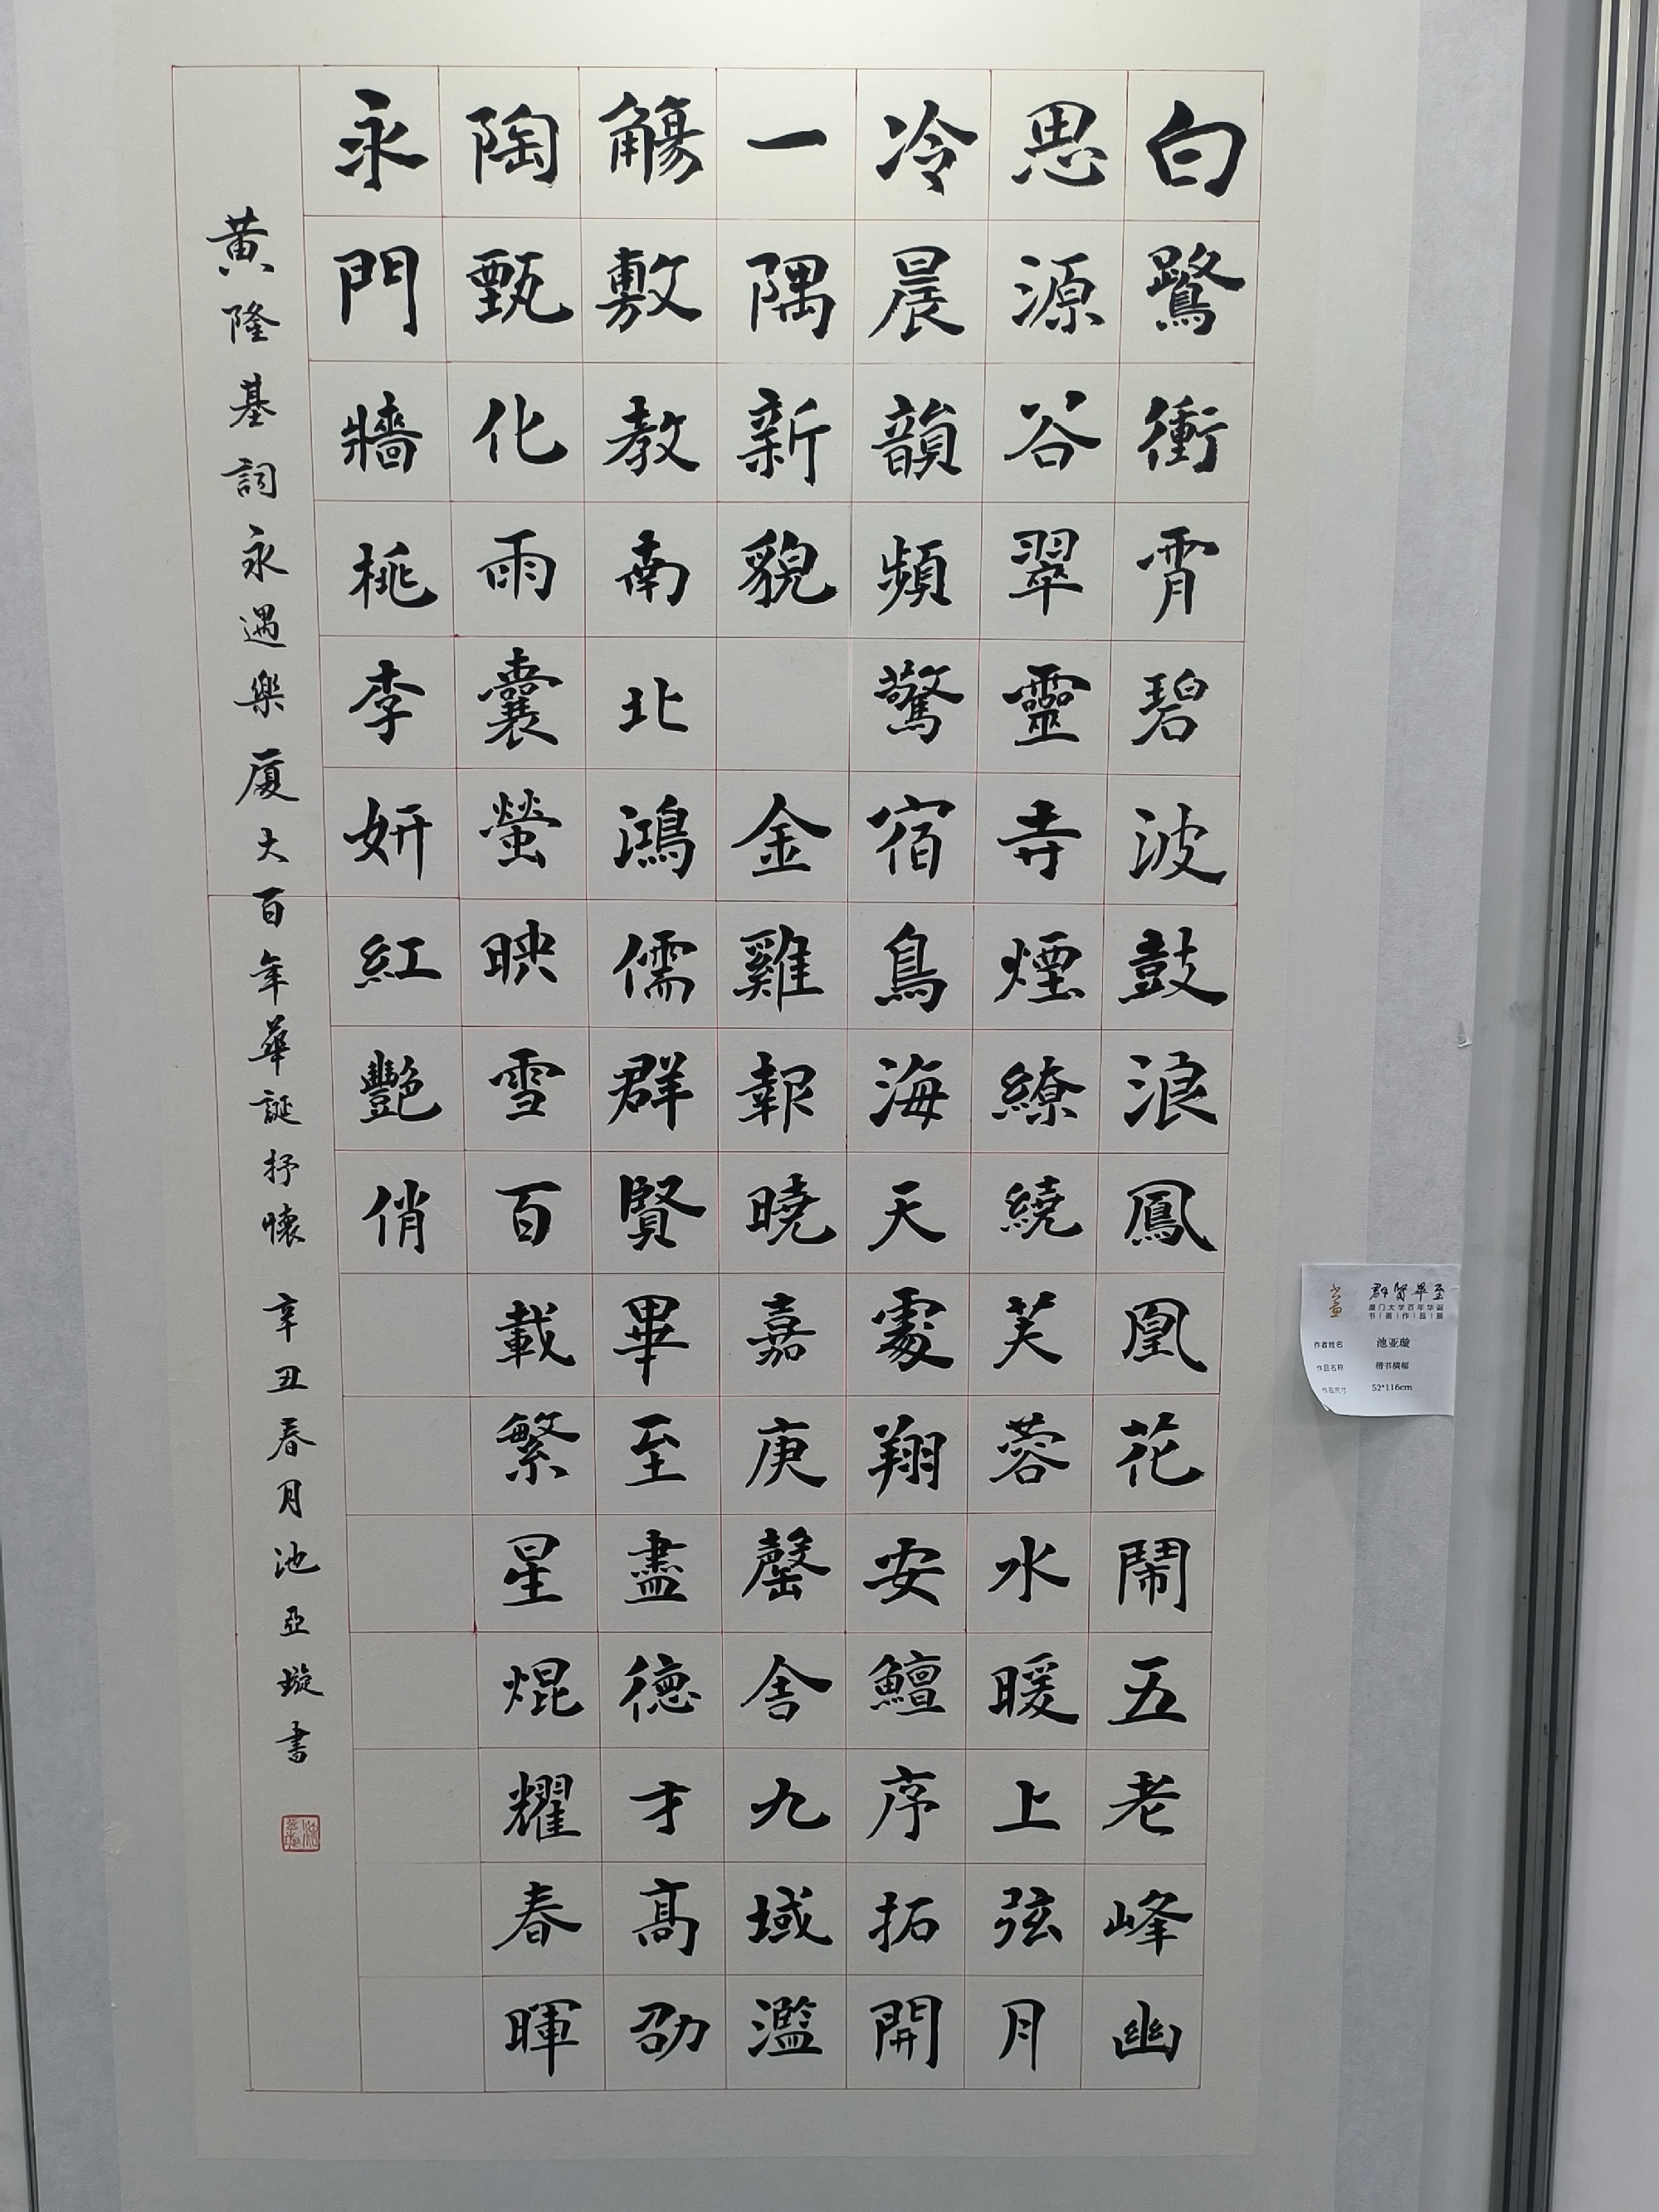 白鷺衝霄碧波鼓浪鳳凰花鬧五老峰幽
思源谷翠靈寺煙繚繞芙蓉水暖上弦月
冷晨韻頻驚宿鳥海天處翔安鱣序拓開
一隅新貌 金雞報曉嘉庚罄舍九域濫
觴敷教南北鴻儒群賢畢至盡德才高劭
陶甄化雨囊螢映雪百載繁星焜耀春暉
永門牆桃李妍紅艷俏
黄隆基詞永遇樂厦大百年華誕抒懷 辛丑春月池亞璇書
群賢畢至
厦门大学百年华诞
书|画|作|品|展
作者姓名 池亚璇
作品名称 楷书横幅
作品尺寸 52*116cm